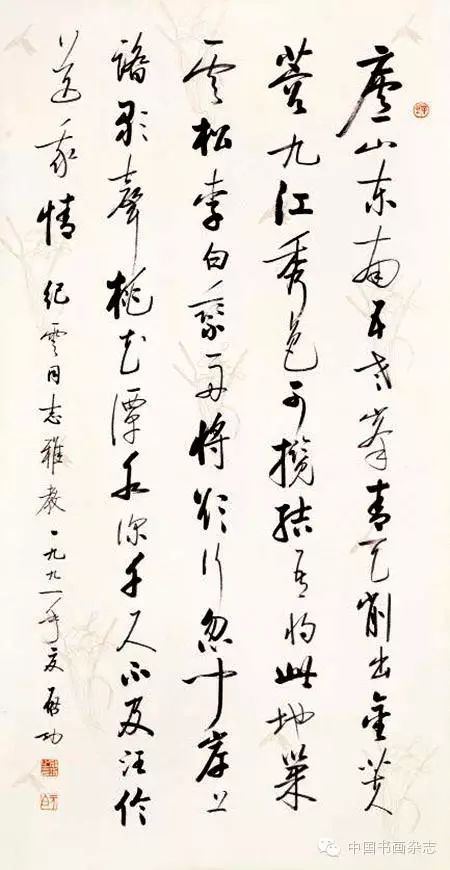 廬山東南五老峰青天削出金芙
蓉九江秀色可攬結吾將此地巢
雲松李白乘舟將欲行忽聞岸上
踏歌聲桃花潭水深千尺不及汪倫
送我情 紀雲同志雅教 一九九一年夏 啟功
中国书画杂志